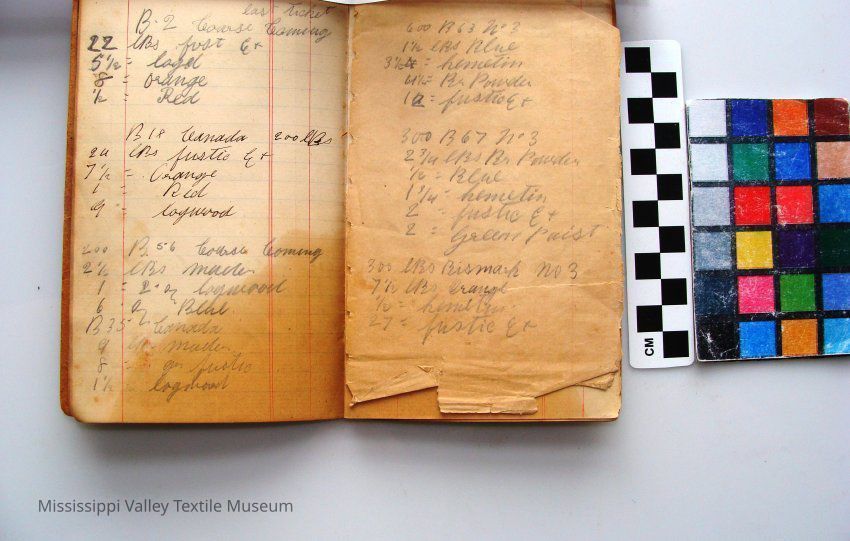 last ticket
B. 2 Coarse Coming
22 lBs fust Ex
5 1/2 = logd
8 = Orange
1/2 = Red
B 18 Canada 200 lBs
24 lBs fustic Ex
7 1/2 = Orange
1 = Red
9 = logwood
200 B. 56 Coarse Coming
2 1/2 lBs mader
1 = 2 oz logwood
6 oz Blue
B 35 Canada
9 lBs mader
8 = fustic
1 1/2 = logwood
600 B 63 No 3
1 1/2 lBs Blue
3 1/2 = hemetin
4 1/2 = Br Powder
12 = fustic Ex
300 B 67 No 3
2 3/4 lBs Br Powder
1/2 = Blue
1 1/4 = hemetin
2 = fustic Ex
2 = Green Paist
300 lBs Bismark No 3
7 1/2 lBs Orange
1/2 = hemetin
27 = fustic Ex
CM
Mississippi Valley Textile Museum